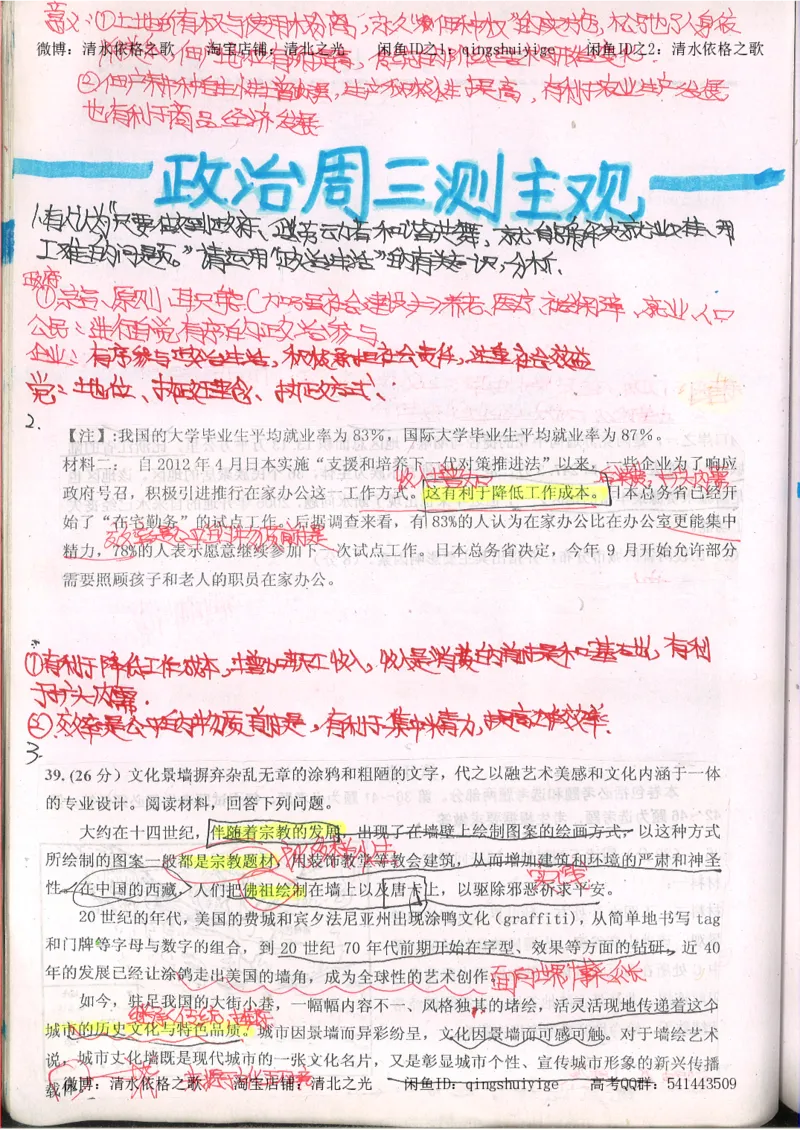 意义:①土地所有权与使用权分离,永久"佃种权"的
微博:清水依格之歌 淘宝店铺:清北之光 闲鱼ID之1:qingshuiyige 闲鱼ID之2:清水依格之歌
②佃户耕种自主性增强,生产积极性提高,有利于农业生产发展
也有利于商品经济发展
政治周三测主观
1.有人认为"只要做到政府、劳动者和谐共舞,就能解决就业难、用
工难的问题。"请运用"政治生活"的有关知识,分析.
政府
①宗旨、原则、职能(加强社会建设 养老、医疗、社会保障、就业、人口
公民:进行自觉有序的政治参与
企业:有序参与政治生活,积极承担社会责任,注重社会效益
党:地位、执政理念、执政方式、
2.
【注】:我国的大学毕业生平均就业率为83%,国际大学毕业生平均就业率为87%。
材料二: 自2012年4月日本实施“支援和培养下一代对策推进法”以来,一些企业为了响应
政府号召,积极引进推行在家办公这一工作方式。这有利于降低工作成本。日本总务省已经开
始了“在宅勤务”的试点工作。后据调查来看,有83%的人认为在家办公比在办公室更能集中
效率是公平的物质前提
精力,78%的人表示愿意继续参加下一次试点工作。日本总务省决定,今年9月开始允许部分
需要照顾孩子和老人的职员在家办公。
①有利于降低工作成本,增加职工收入,收入是消费的前提和基础,有利
于扩大内需.
②效率是公平的物质前提,有利于集中精力,提高工作效率.
3.
39.(26分)文化景墙摒弃杂乱无章的涂鸦和粗陋的文字,代之以融艺术美感和文化内涵于一体
的专业设计。阅读材料,回答下列问题。
大约在十四世纪,伴随着宗教的发展,出现了在墙壁上绘制图案的绘画方式,以这种方式
所绘制的图案一般都是宗教题材,用装饰教堂等教会建筑,从而增加建筑和环境的严肃和神圣
性。在中国的西藏,人们把佛祖绘制在墙上以及唐卡上,以驱除邪恶祈求平安。
20世纪的年代,美国的费城和宾夕法尼亚州出现涂鸭文化(graffiti),从简单地书写tag
和门牌等字母与数字的组合,到20世纪70年代前期开始在字型、效果等方面的钻研,近40
年的发展已经让涂鸽走出美国的墙角,成为全球性的艺术创作
如今,驻足我国的大街小巷,一幅幅内容不一、风格独其的堵绘,活灵活现地传递着这个
城市的历史文化与特色品质。城市因景墙而异彩纷呈,文化因景墙而可感可触。对于墙绘艺术
说,城市丈化墙既是现代城市的一张文化名片,又是彰显城市个性、宣传城市形象的新兴传播
载体。
微博:清水依格之歌 淘宝店铺:清北之光 闲鱼ID:qingshuiyige 高考QQ群:541443509